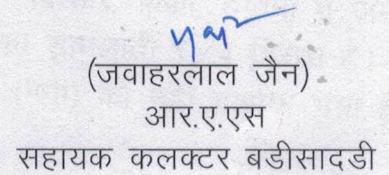 (जवाहरलाल जैन)
आर.ए.एस
सहायक कलक्टर बडीसादडी